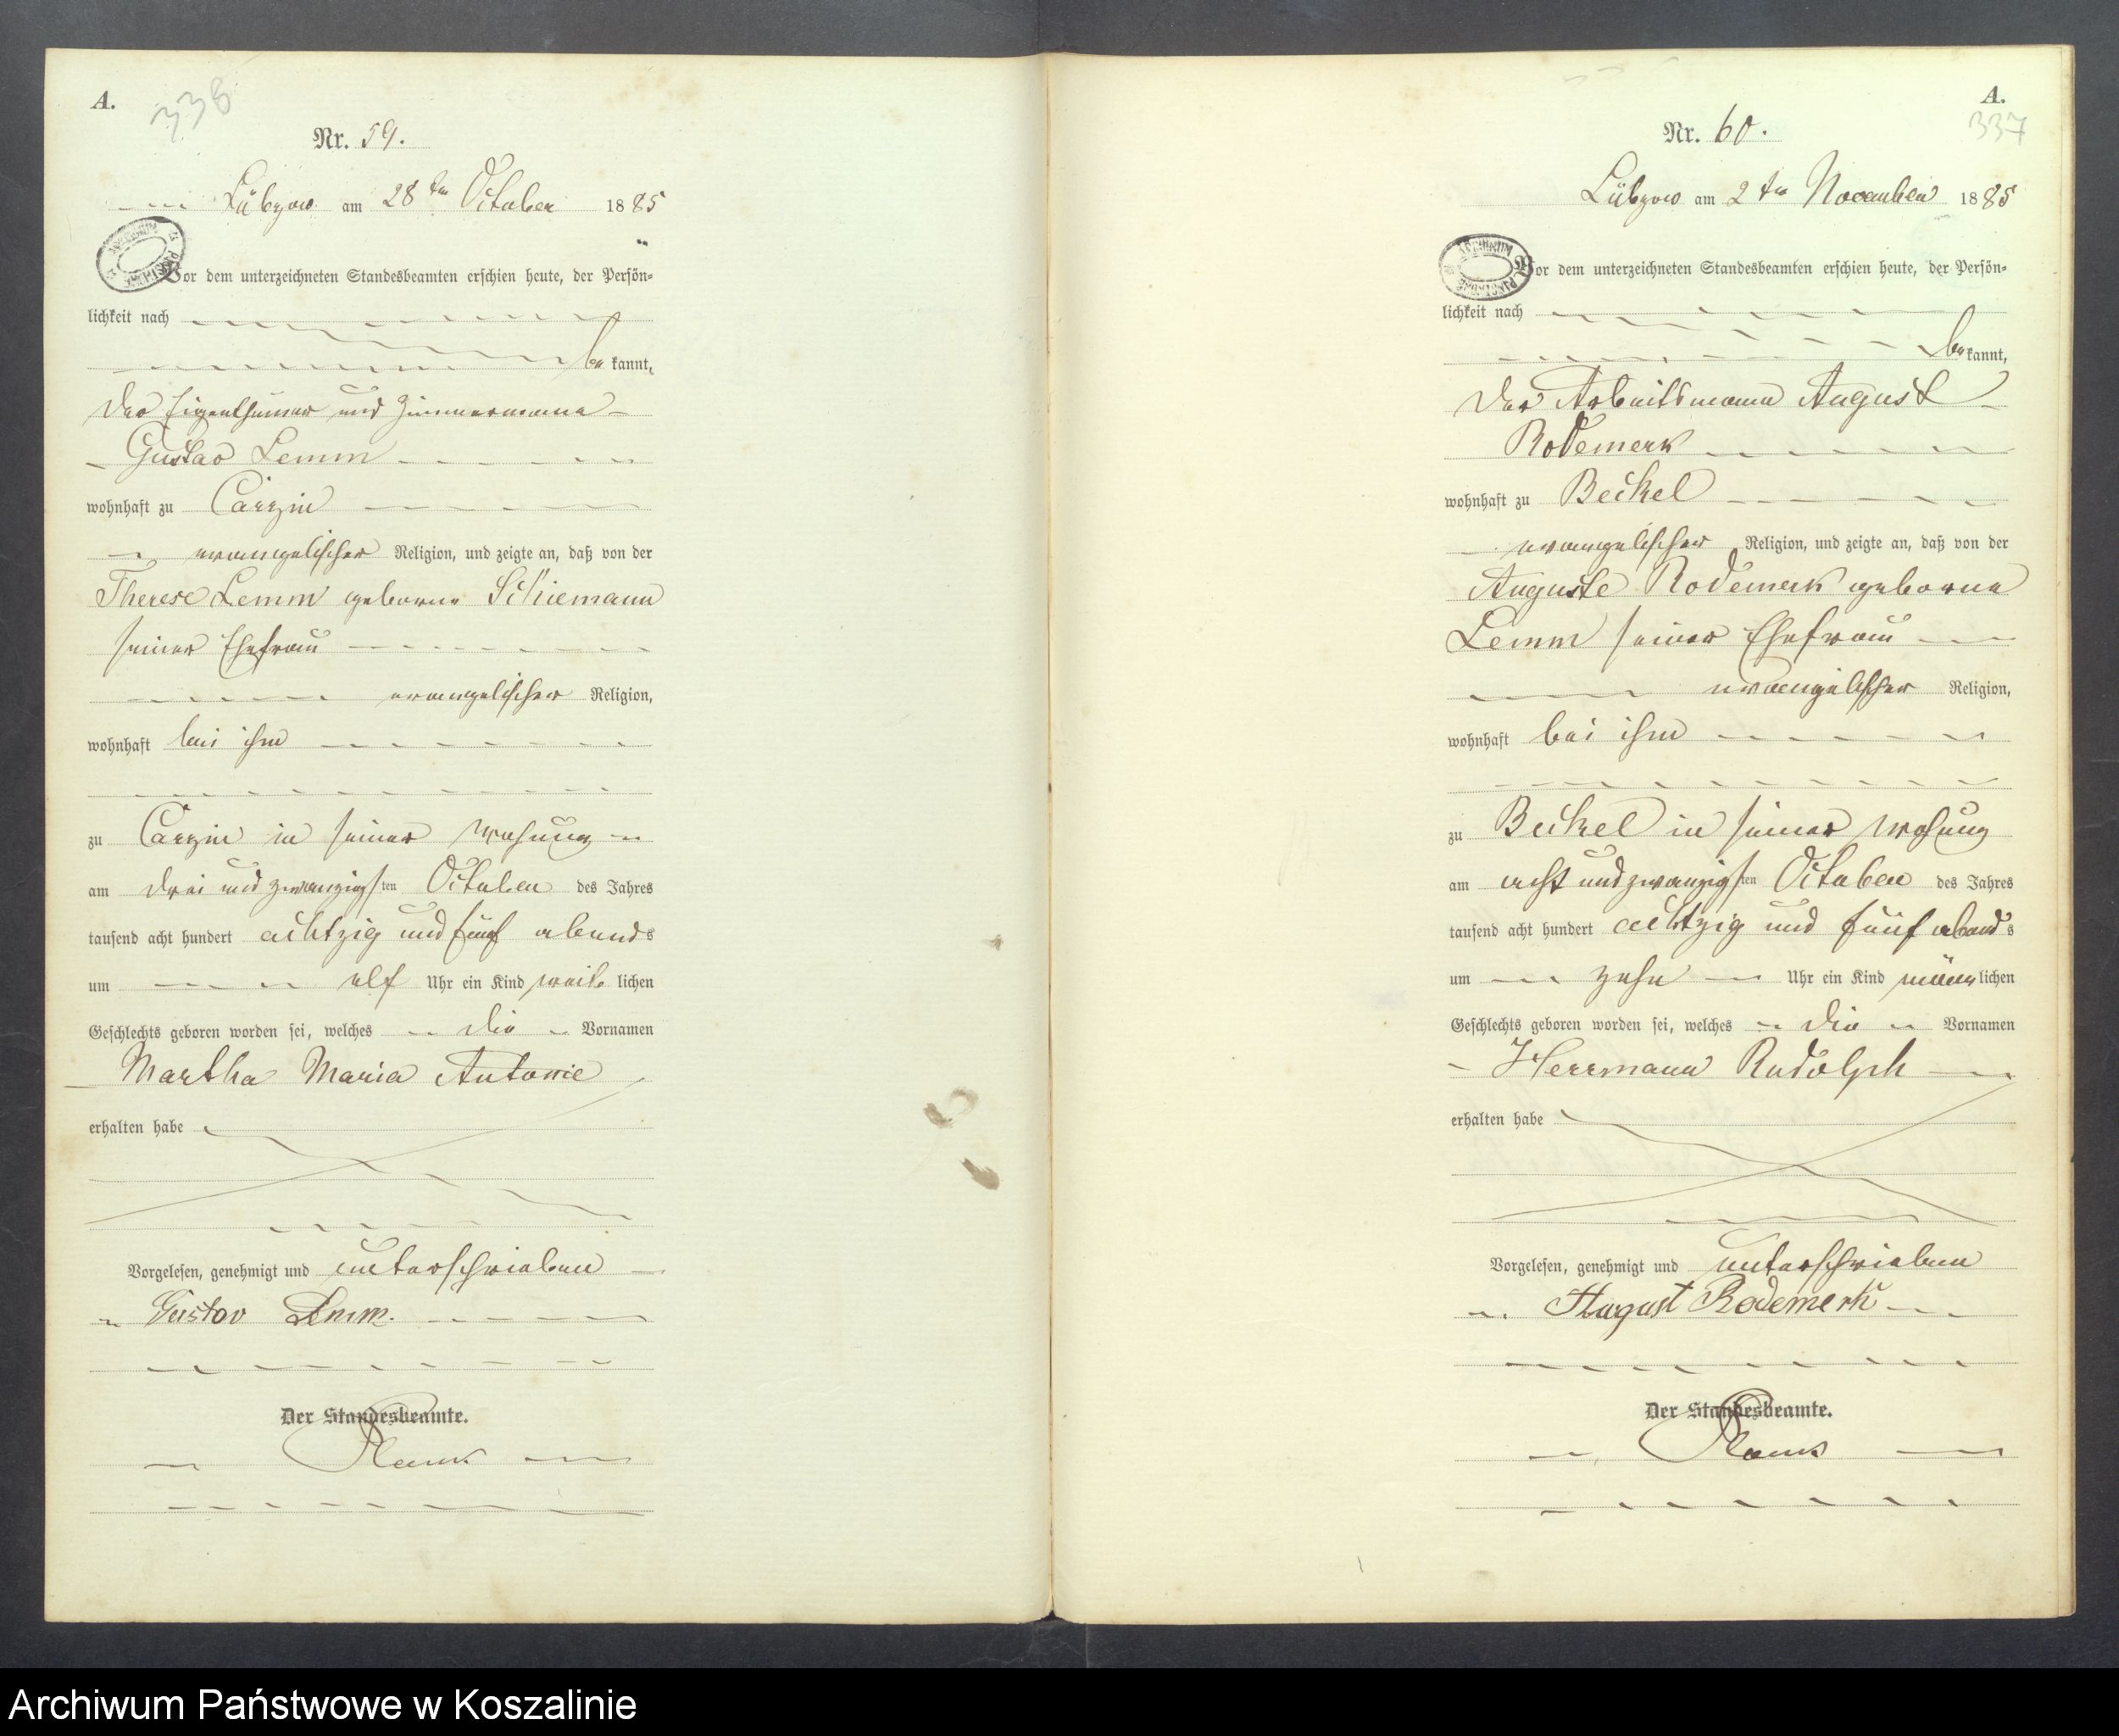 A.
338
Nr. 59.
Lübzow am 28ten October 1885
Vor dem unterzeichneten Standesbeamten erschien heute, der Persön-
lichkeit nach
be kannt,
der Eigenthümer und Zimmermann
Gustav Lemm
wohnhaft zu Carzin
evangelischer Religion, und zeigte an, daß von der
Therese Lemm geborne Schiemann
seiner Ehefrau
evangelischer Religion,
wohnhaft bei ihm
zu Carzin in seiner Wohnung
am drei und zwanzigsten October des Jahres
tausend acht hundert achtzig und fünf abends
um elf Uhr ein Kind weiblichen
Geschlechts geboren worden sei, welches die Vornamen
Martha Maria Antonie
erhalten habe
Vorgelesen, genehmigt und unterschrieben
Gustav Lemm.
Der Standesbeamte.
A.
337
Nr. 60.
Lübzow am 2ten November 1885
Vor dem unterzeichneten Standesbeamten erschien heute, der Persön-
lichkeit nach
bekannt,
der Arbeitsmann August
Rodemerk
wohnhaft zu Beckel
evangelischer Religion, und zeigte an, daß von der
Auguste Rodemerk geborne
Lemm seiner Ehefrau
evangelischer Religion,
wohnhaft bei ihm
zu Beckel in seiner Wohung
am acht und zwanzigsten October des Jahres
tausend acht hundert achtzig und fünf abends
um zehn Uhr ein Kind männlichen
Geschlechts geboren worden sei, welches die Vornamen
Herrmann Rudolph
erhalten habe
Vorgelesen, genehmigt und unterschrieben
August Rodemerk
Der Standesbeamte.
Archiwum Państwowe w Koszalinie